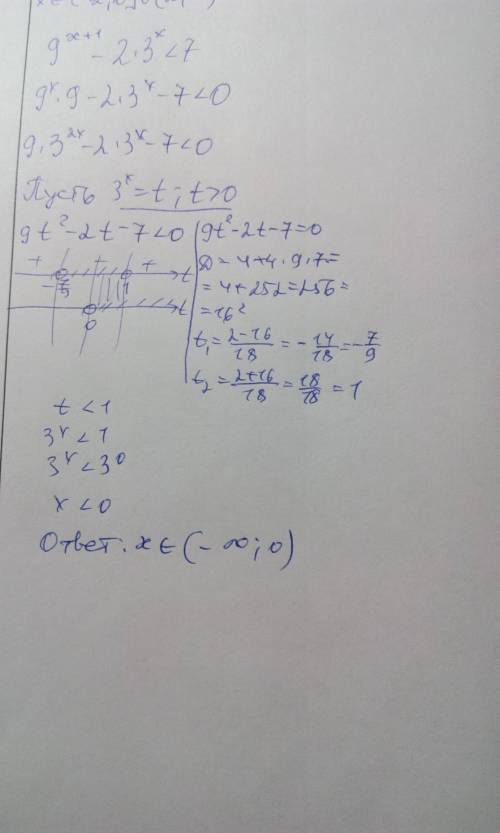 9^{x+1} - 2·3^x < 7
9^x·9 - 2·3^x - 7 < 0
9·3^{2x} - 2·3^x - 7 < 0
Пусть 3^x = t; t > 0
9t² - 2t - 7 < 0
+ - + t
1
0 t
9t² - 2t - 7 = 0
D = 4 + 4·9·7 =
= 4 + 252 = 256 =
= 16²
t₁ = (2-16)/18 = -14/18 = -7/9
t₂ = (2+16)/18 = 18/18 = 1
t < 1
3^x < 1
3^x < 3^0
x < 0
Ответ: x ∈ (-∞; 0)